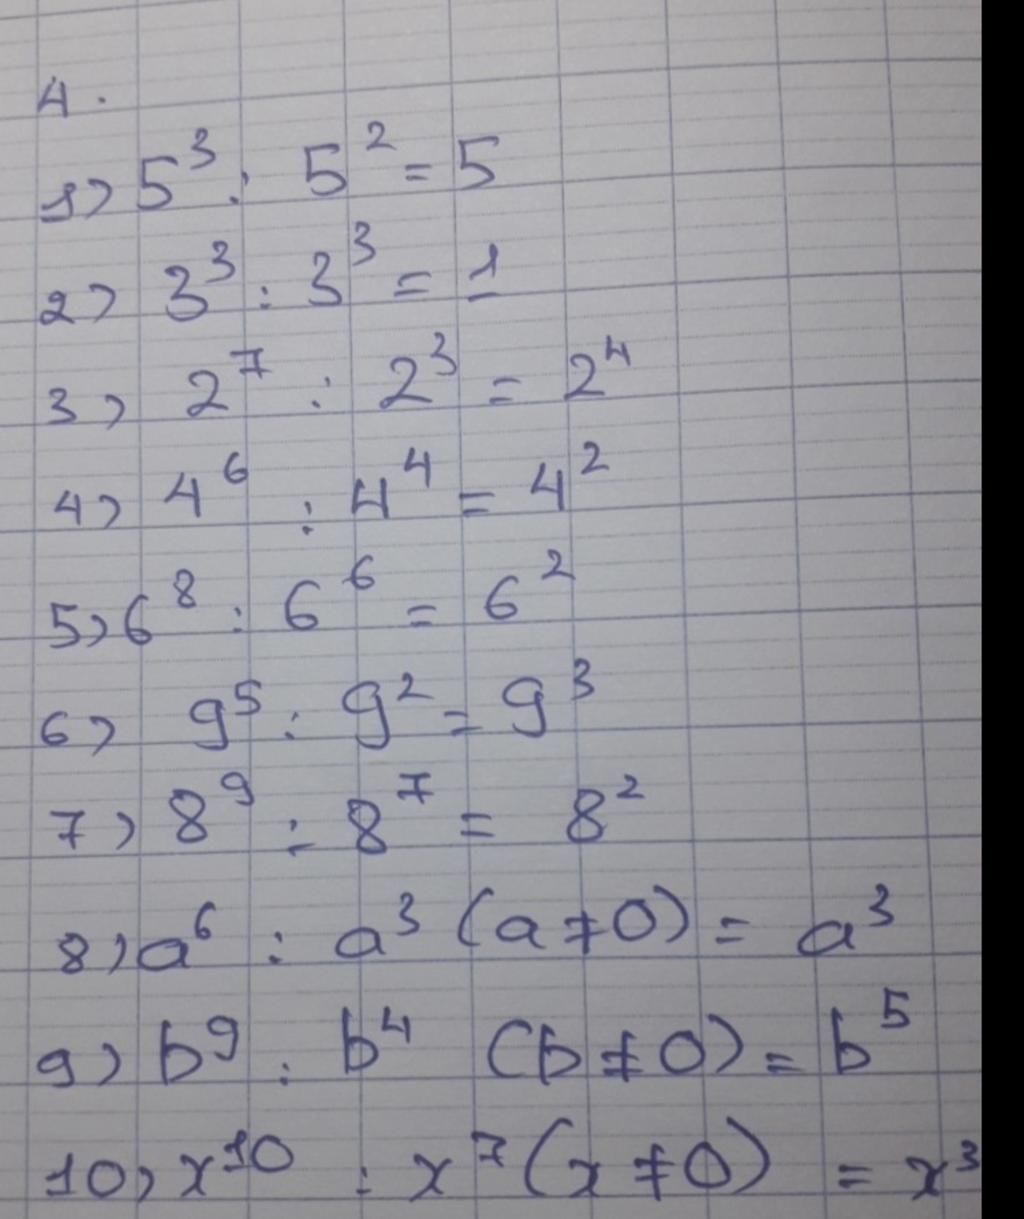 4.
1) 5³ : 5² = 5
2) 3³ : 3³ = 1
3) 2⁷ : 2³ = 2⁴
4) 4⁶ : 4⁴ = 4²
5) 6⁸ : 6⁶ = 6²
6) 9⁵ : 9² = 9³
7) 8⁹ : 8⁷ = 8²
8) a⁶ : a³ (a ≠ 0) = a³
9) b⁹ : b⁴ (b ≠ 0) = b⁵
10) x¹⁰ : x⁷ (x ≠ 0) = x³